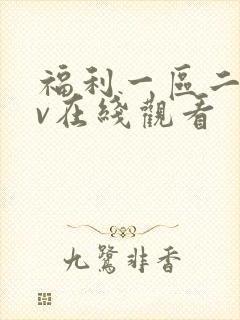 福利一區二
v在綫觀看
九鷺非香